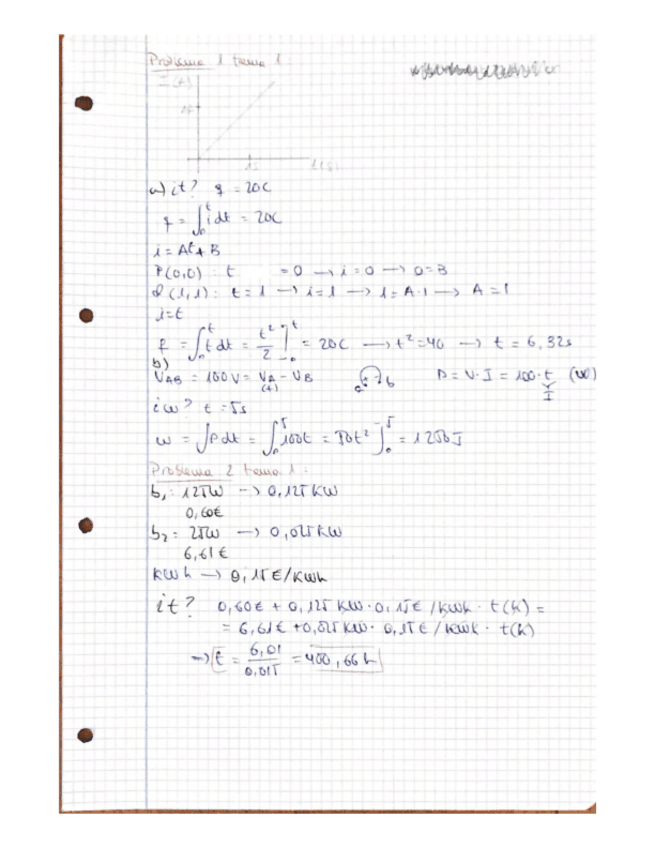 Problema 1 tema 1:
I(A)
1A
1s t(s)
a) ¿t? q = 20C
q = ∫₀ᵗ i dt = 20C
i = At + B
P(0,0): t = 0 → i = 0 → 0 = B
Q(1,1): t = 1 → i = 1 → 1 = A·1 → A = 1
i = t
q = ∫₀ᵗ t dt = t²/2 ]₀ᵗ = 20C → t² = 40 → t = 6,32s
b)
V_AB = 100V = V_A - V_B a b P = V·I = 100·t (W)
(+) I
¿W? t = 5s
W = ∫P dt = ∫₀⁵ 100t = 50t² ]₀⁵ = 1250J
Problema 2 tema 1:
b₁: 125W → 0,125KW
0,60€
b₂: 25W → 0,025KW
6,61€
KWh → 0,15€/KWh
¿t? 0,60€ + 0,125 KW·0,15€/KWh · t(h) =
= 6,61€ + 0,025 KW· 0,15€/KWh · t(h)
→ t = 6,01/0,015 = 400,66h